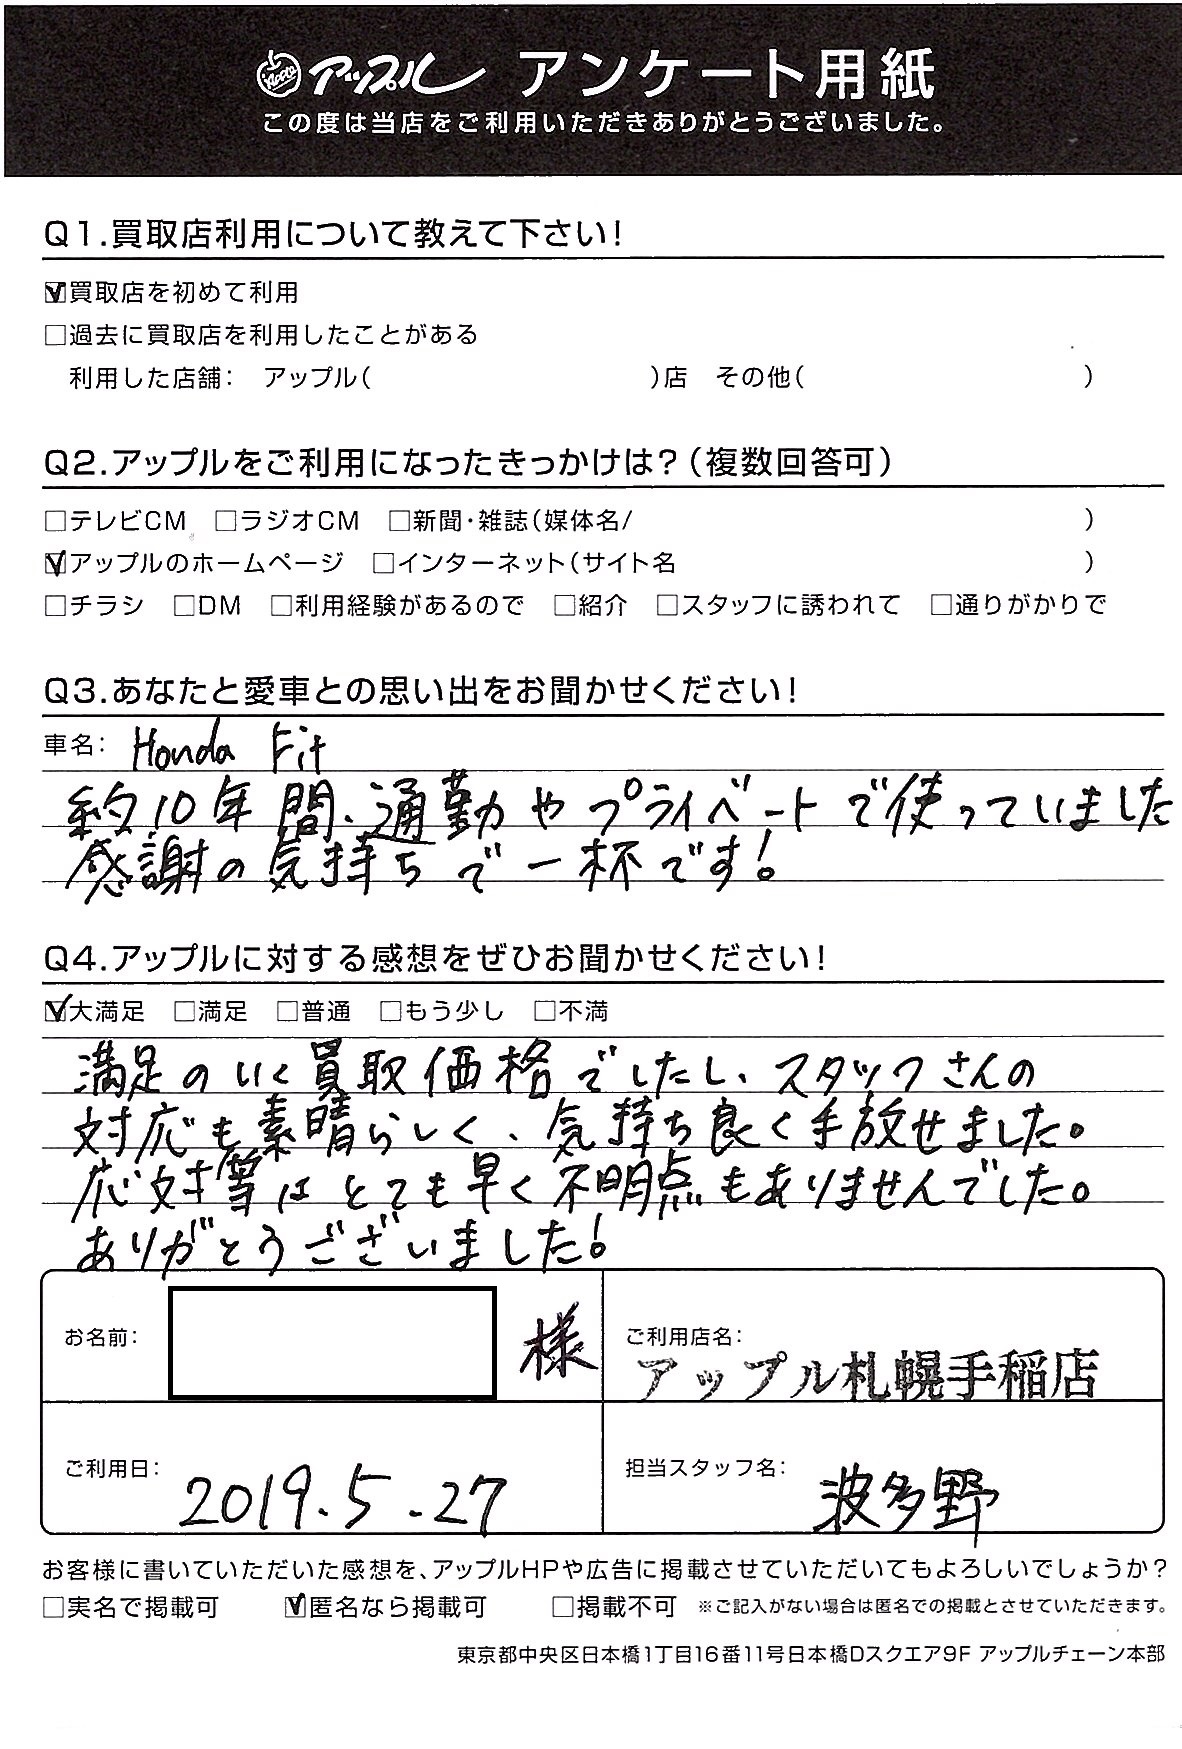 アップル アンケート用紙
この度は当店をご利用いただきありがとうございました。
Q1.買取店利用について教えて下さい!
☑買取店を初めて利用
□過去に買取店を利用したことがある
利用した店舗: アップル( )店 その他( )
Q2.アップルをご利用になったきっかけは?(複数回答可)
□テレビCM □ラジオCM □新聞・雑誌(媒体名/ )
☑アップルのホームページ □インターネット(サイト名 )
□チラシ □DM □利用経験があるので □紹介 □スタッフに誘われて □通りがかりで
Q3.あなたと愛車との思い出をお聞かせください!
車名: Honda Fit
約10年間、通勤やプライベートで使っていました
感謝の気持ちで一杯です!
Q4.アップルに対する感想をぜひお聞かせください!
☑大満足 □満足 □普通 □もう少し □不満
満足のいく買取価格でしたし、スタッフさんの
対応も素晴らしく、気持ち良く手放せました。
応対等はとても早く不明点もありませんでした。
ありがとうございました!
お名前: 様 ご利用店名:
アップル札幌手稲店
ご利用日: 2019.5.27 担当スタッフ名: 波多野
お客様に書いていただいた感想を、アップルHPや広告に掲載させていただいてもよろしいでしょうか?
□実名で掲載可 ☑匿名なら掲載可 □掲載不可 ※ご記入がない場合は匿名での掲載とさせていただきます。
東京都中央区日本橋1丁目16番11号日本橋Dスクエア9F アップルチェーン本部